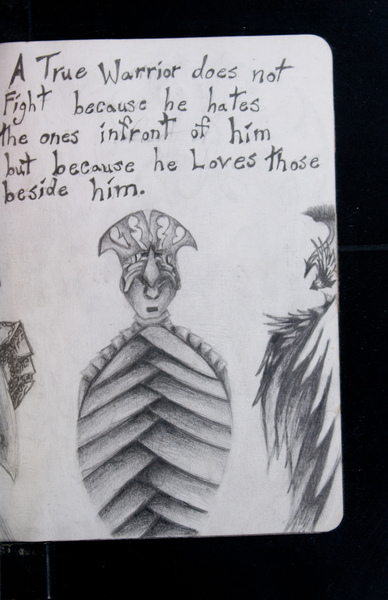 A True Warrior does not
Fight because he hates
the ones infront of him
but because he Loves those
beside him.